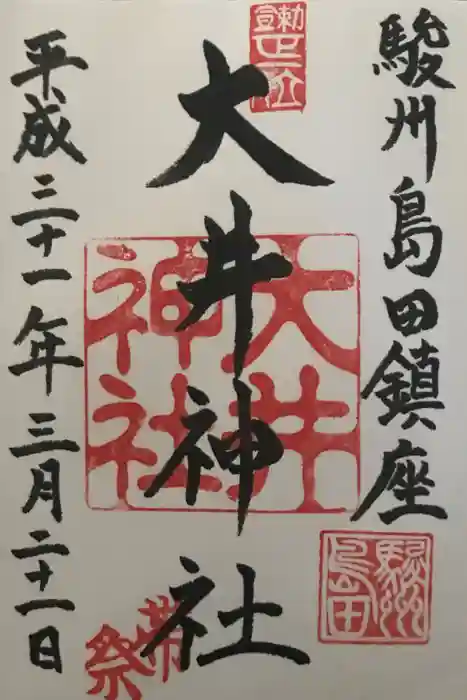 駿州島田鎮座
勅宣正一位
大井神社
大井神社
駿州島田
帯祭
平成三十一年三月二十一日